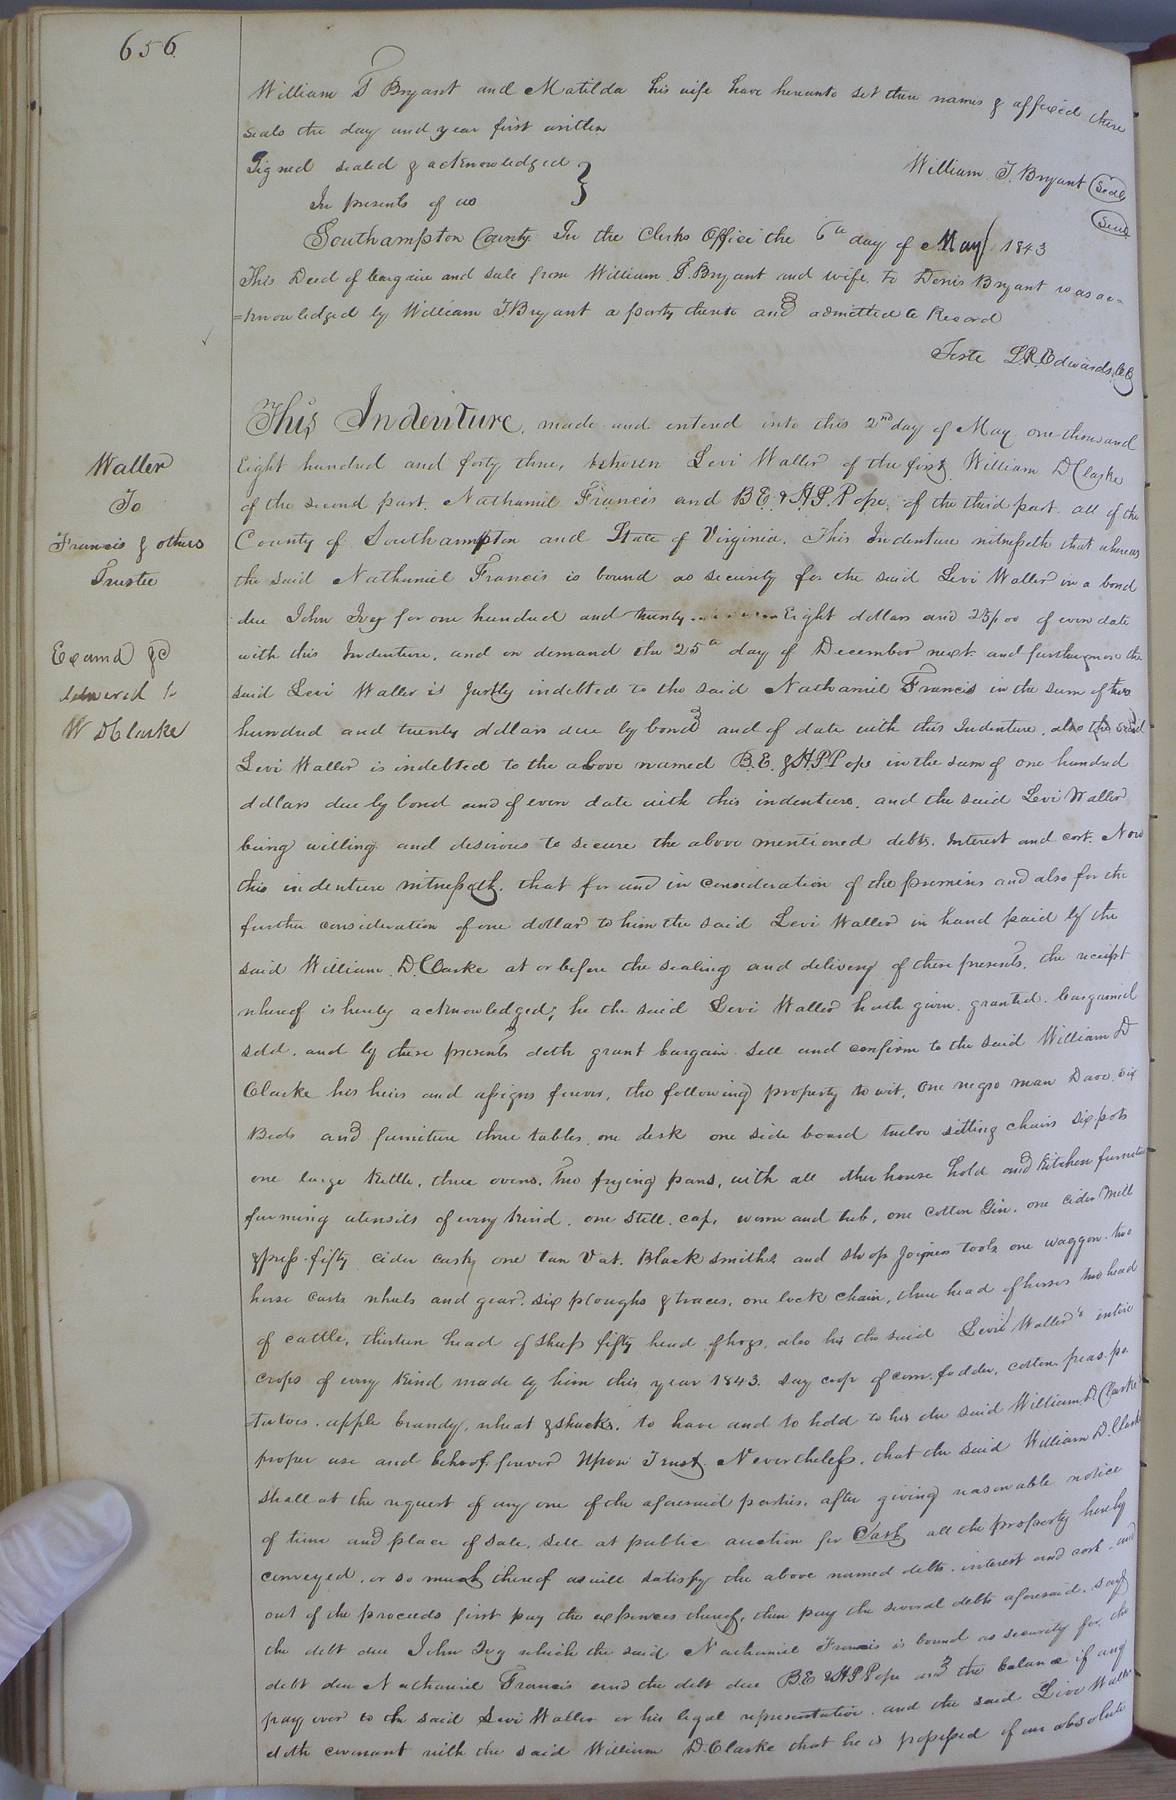 656
William T Bryant and Matilda his wife have hereunto set there names & affixed there
seals the day and year first written
Signed sealed & acknowledged
In presents of us
William T. Bryant Seal
Seal
Southampton County In the Clerks Office the 6th day of May 1843
This Deed of bargain and sale from William T. Bryant and wife to Denis Bryant was ac=
=knowledged by William T Bryant a party thereto and admitted to Record
Teste L.R. Edwards. CC
This Indenture, made and entered into this 2nd day of May one thousand
Eight hundred and forty three, between Levi Waller of the first William D Clarke
of the second part. Nathaniel Francis and B.E. & H.P. Pope, of the third part all of the
County of Southampton and State of Virginia. This Indenture witnesseth that whereas
the said Nathaniel Francis is bound as security for the said Levi Waller in a bond
due John Ivy for one hundred and twenty Eight dollars and 25/00 of even date
with this Indenture, and on demand the 25th day of December next. and furthermore the
said Levi Waller is justly indebted to the said Nathaniel Francis in the sum of two
hundred and twenty dollars due by bond and of date with this Indenture. also the said
Levi Waller is indebted to the above named B.E. & H.P. Pope in the sum of one hundred
dollars due by bond and of even date with this indenture. and the said Levi Waller
being willing and desirous to secure the above mentioned debts. Interest and cost. Now
this indenture witnesseth. that for and in consideration of the premises and also for the
further consideration of one dollar to him the said Levi Waller in hand paid by the
said William D. Clarke at or before the sealing and delivery of these presents, the receipt
whereof is hereby acknowledged; he the said Levi Waller hath given. granted. bargained
sold. and by these presents doth grant bargain sell and confirm to the said William D
Clarke his heirs and assigns forever, the following property to wit, One negro man Dave. six
Beds and furniture three tables, one desk one side board twelve sitting chairs six pots
one large kettle, three ovens. Two frying pans, with all other house hold and kitchen furniture
farming utensils of every kind. one still. cap, worm and tub, one cotton Gin. one cider Mill
& press. fifty cider casks one tan Vat. Black smiths and shop Joyners tools one waggon. two
horse carts wheels and gear. six ploughs & traces, one lock chain, three head of horses two head
of cattle, thirteen head of sheep fifty head of hogs, also his the said Levi Waller's entire
crops of every kind made by him this year 1843. say crop of corn. fodder, cotton peas. po
tatoes. apple brandy, wheat & shucks. to have and to hold to his the said William D. Clarke
proper use and behoof forever Upon Trust Nevertheless, that the said William D. Clark
shall at the request of any one of the aforesaid parties, after giving reasonable notice
of time and place of sale, sell at public auction for Cash all the property hereby
conveyed, or so much thereof as will satisfy the above named debts. interest and cost. and
out of the proceeds first pay the expences thereof, then pay the several debts aforesaid. say
the debt due John Ivy which the said Nathaniel Francis is bound as security for. the
debt due Nathaniel Francis and the debt due B.E & H.P Pope and the balance if any
pay over to the said Levi Waller or his legal representative. and the said Levi Waller
doth covenant with the said William D. Clarke that he is possessed of an absolute
Waller
To
Francis & others
Trustee
Examd &c
delivered to
W D Clarke